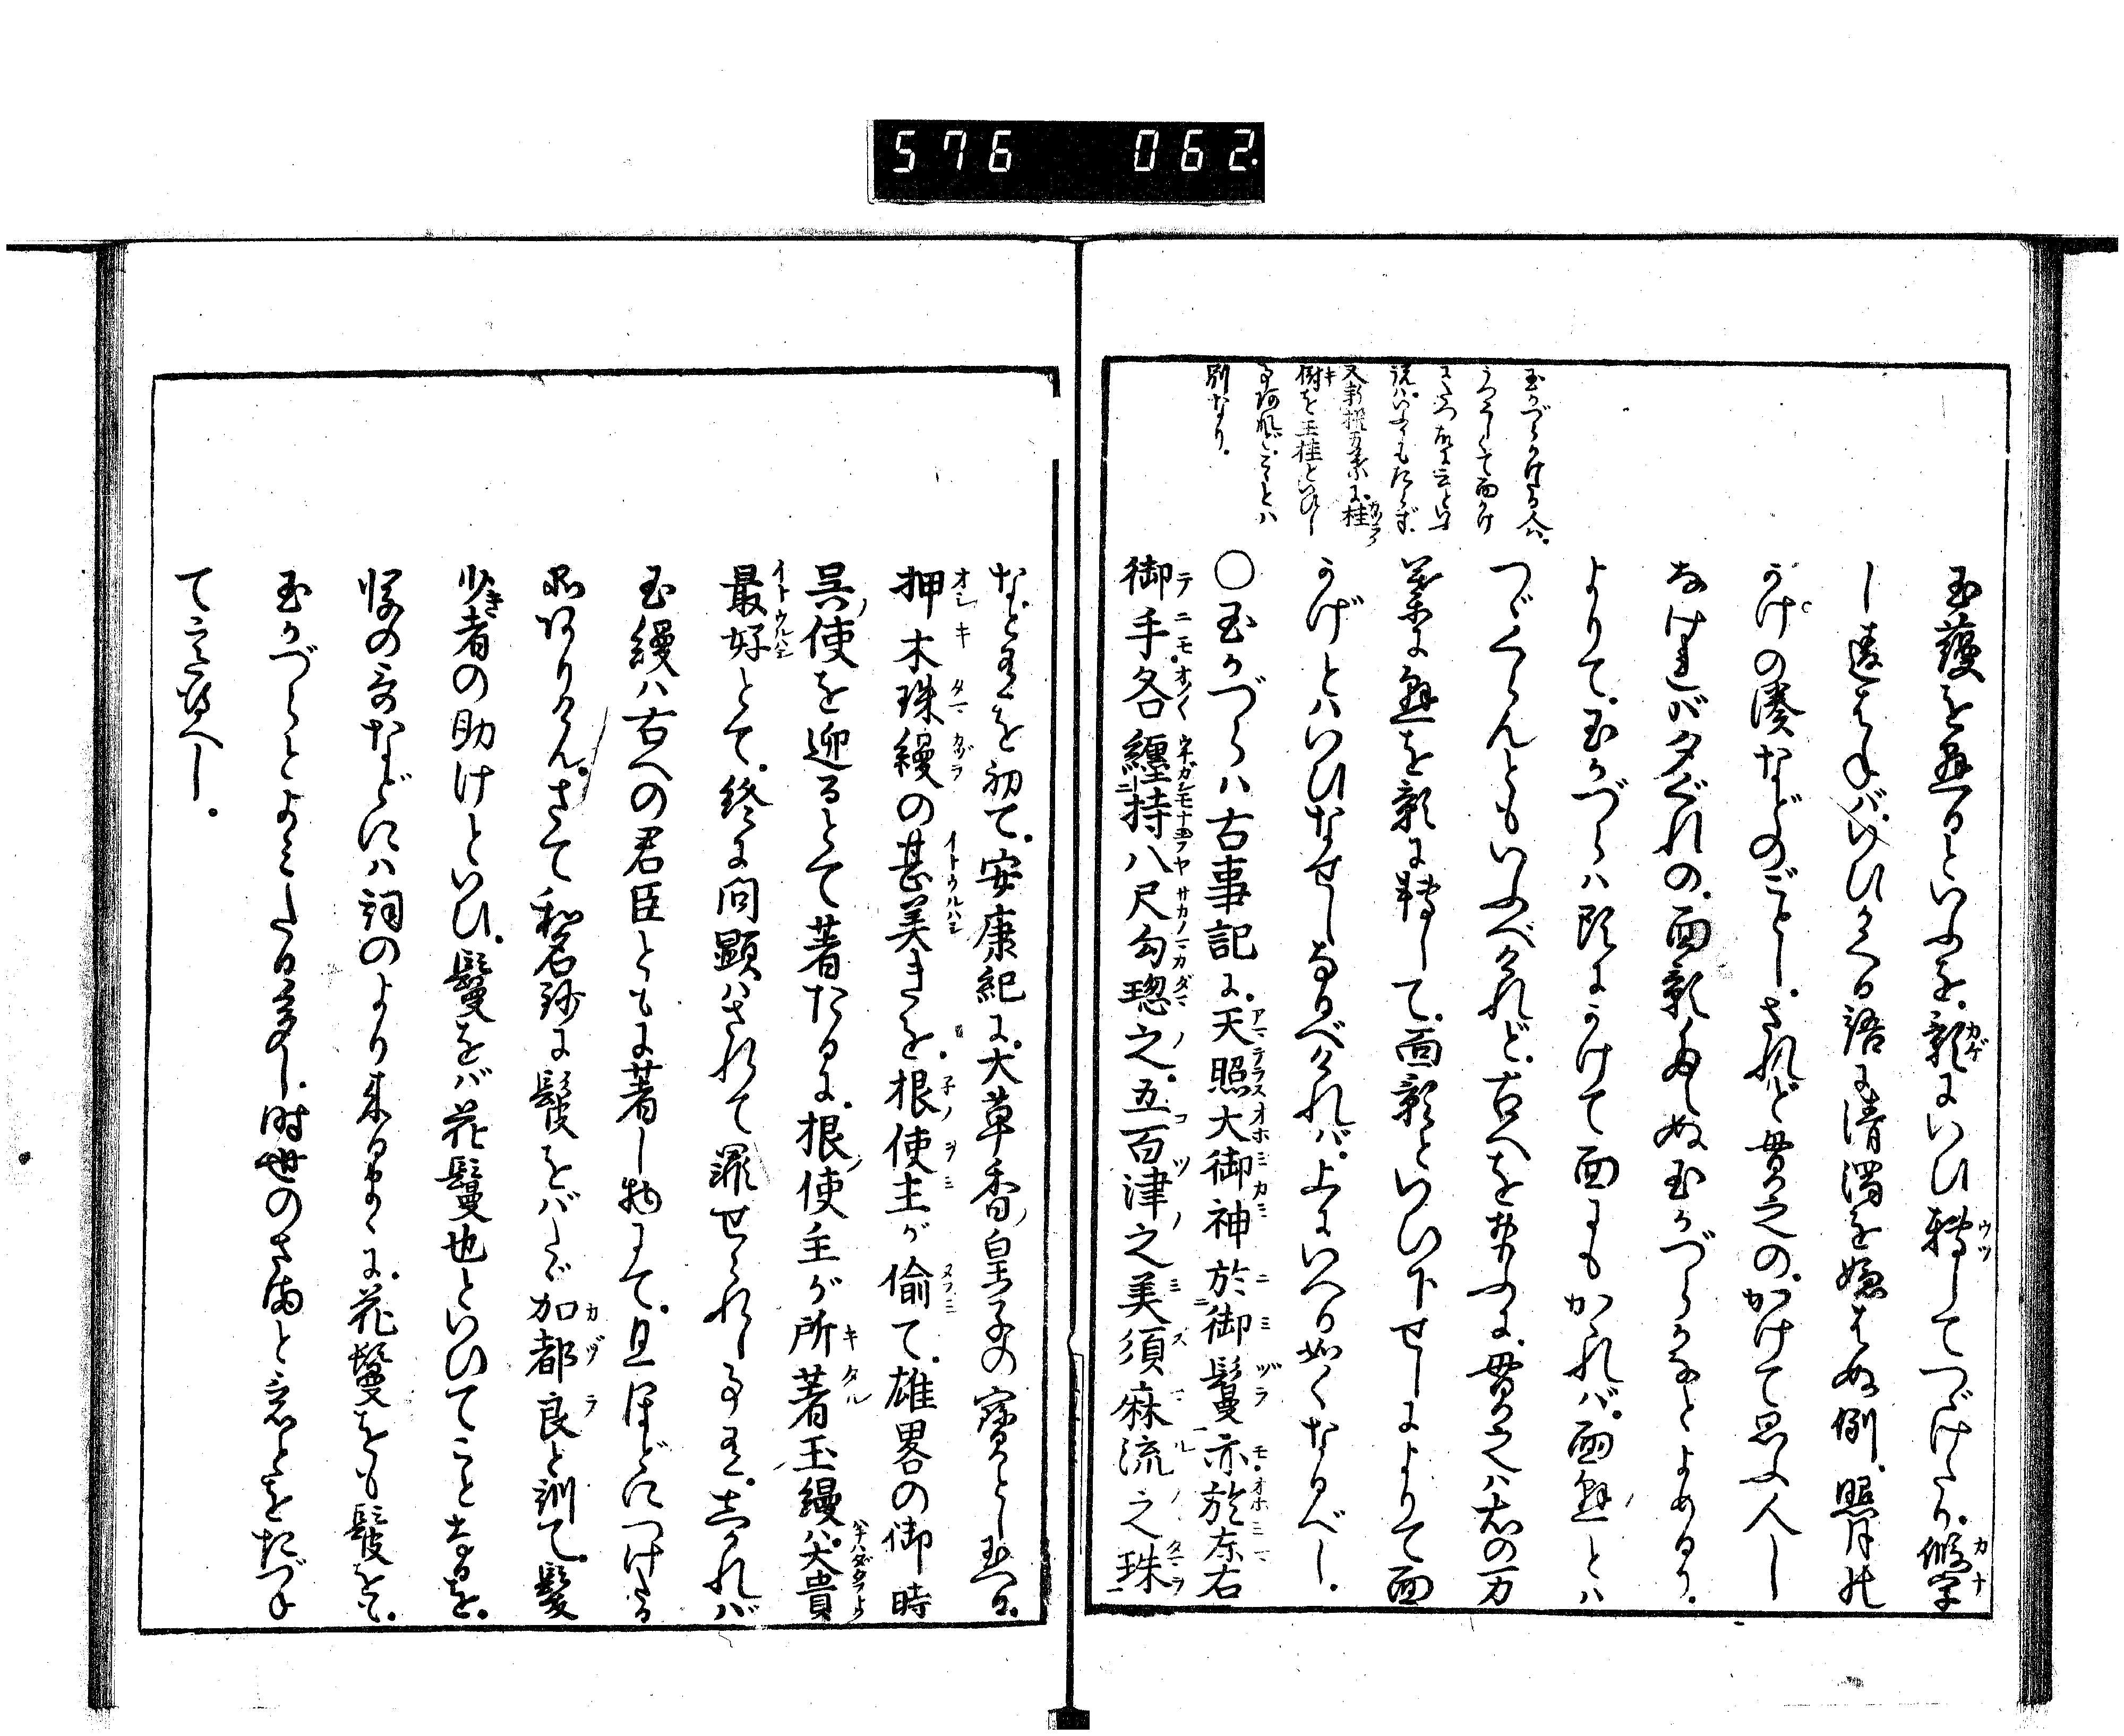 576 062.
玉蘰を懸るといふを。影にいひ轉してつゞけたり。假字
し違はねバ、いひかくる語に清濁を嫌はぬ例。照月の
かけの湊などのごとし。されど貫之の。かけて思ふ人し
なけれバ夕ぐれの。面影たえぬ玉かづらかなとよめるに
よりて。玉かづらハ頭にかけて面にもかゝれバ。面懸とハ
つゞくらんともいふべけれど。古へを考ふに。貫之ハ右の万
葉に懸を影に轉して。面影といひ下せしによりて面
かげとハいひなせしなるべけれバ。上にいへる如くなるべし。
○玉かづらハ古事記に。天照大御神於御鬘亦於左右
御手各纏持八尺勾璁之。五百津之美須麻流之珠
玉かづらかけぬ人ハ。
別なり。
などあるを初て。安康紀に。大草香皇子の寶とし玉へる。
押木珠縵の甚美きを。根使主が偷て。雄畧の御時
呉使を迎るとて著たるに。根使主が所著玉縵ハ。大貴
最好とて。終に問顕ハされて罪せられし事あり。しかれバ
玉縵ハ古への君臣ともに著し物にて。且ほどにつけたる
品ありけん。さて和名抄に鬘をバたゞ加都良と訓て。髪
少き者の助けといひ。鬘をバ花鬘也といひてことなるを。
後の哥などにハ詞のより来るまゝに。花鬘をも鬘をも。
玉かづらとよみたる多し。時世のさまと意とをたづね
て意得べし。